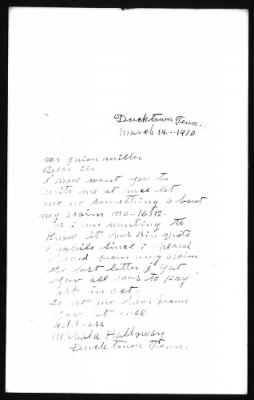 Ducktown Tenn.
March 14 - 1910
Mr guion miller
Dear Sir
I now want you to
write me at once let
me no something about
my claim no - 16312.
as i am wanting to
Know it has Bin quite
a while Since i heard
heard from my claim
the last letter I got
you all was to pay
off in oct.
So let me hear from
you at once
address
Mahala Halloway
Ducktown Tenn.